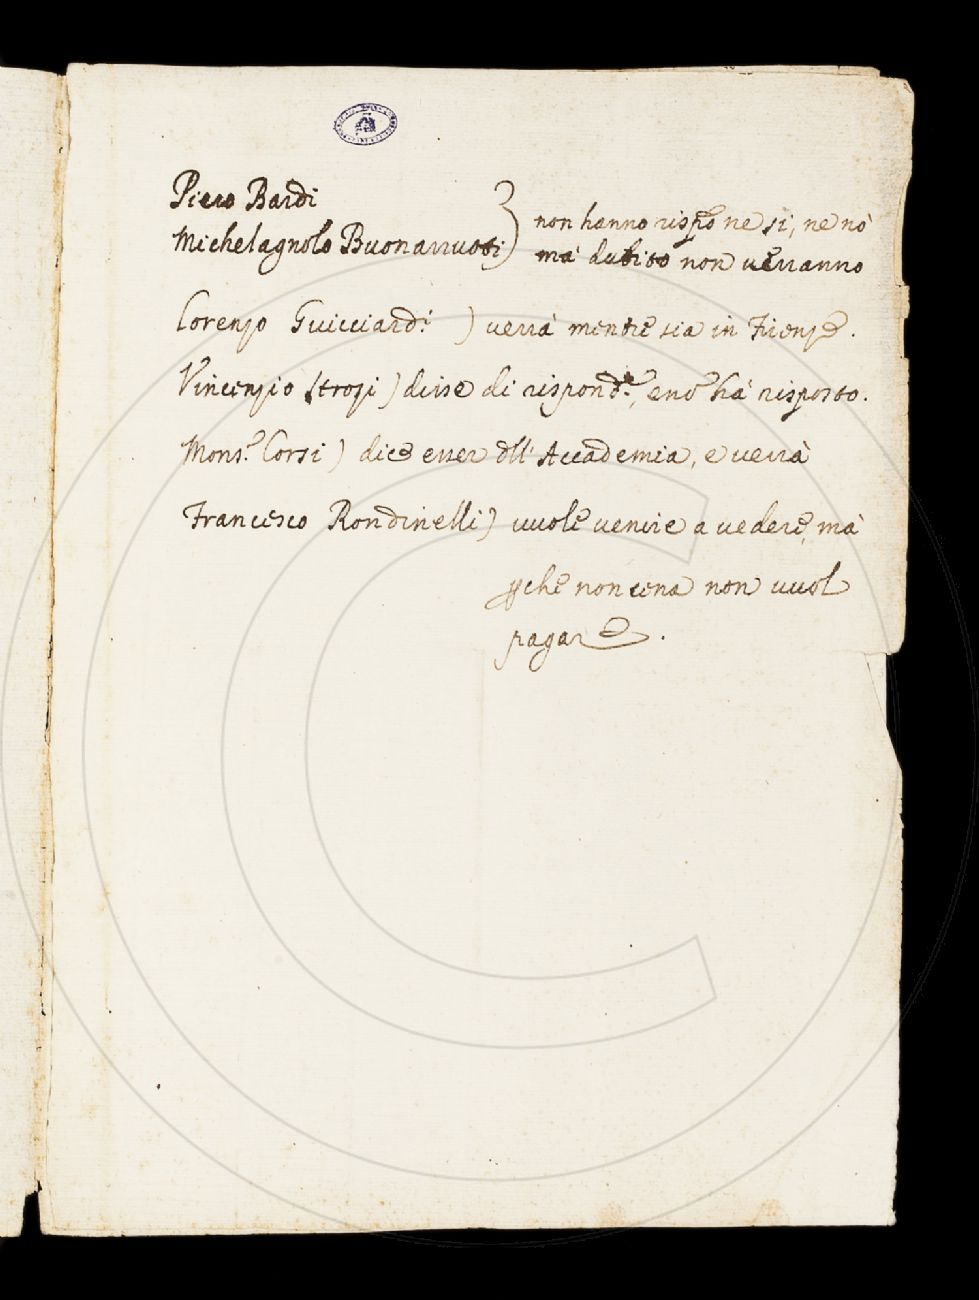 Piero Bardi
Michelagnolo Buonarruoti } non hanno rispo ne si, ne nò
mà dubito non verranno
Lorenzo Guicciardi ) verrà mentre sia in Firenze.
Vincenzio Strozi ) disse di rispond.e, e nō hà risposto.
Mons.r Corsi ) dice esser dll' Accademia, e verrà
Francesco Rondinelli ) vuole venire a vedere, mà
ꝑche non cena non vuol
pagare.